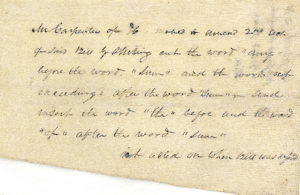 Mr Carpenter of N moves to amend 2nd sec.
of said Bill by striking out the word "any"
before the word "sum" and the words not
exceeding after the word sum and
insert the word "the" before and the word
"of" after the word "sum"
not acted on when Bill was